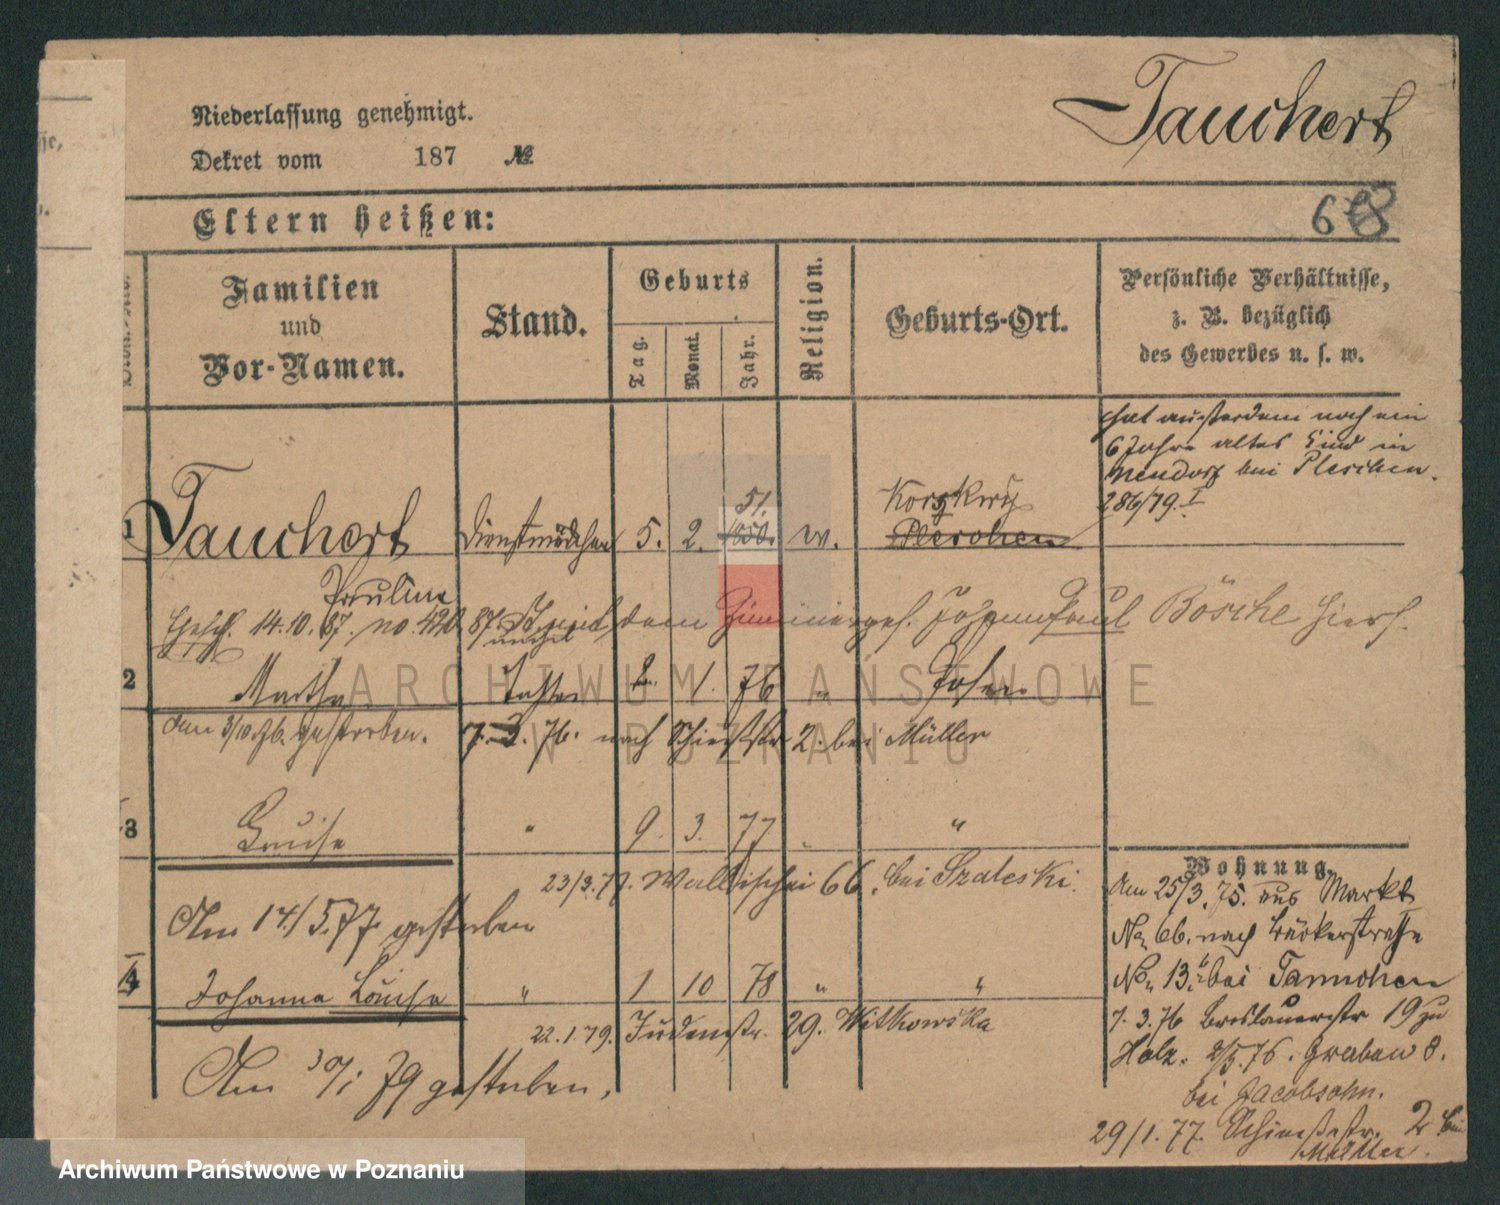 Tauchert
Niederlassung genehmigt.
Dekret vom 187 №
68
Eltern heißen:
Familien und Vor-Namen.
Stand.
Geburts
Tag.
Monat.
Jahr.
Religion.
Geburts-Ort.
Persönliche Verhältnisse,
z. B. bezüglich
des Gewerbes u. s. w.
hat außerdem noch ein
6 Jahre altes Kind in
Neudorf bei Pleschen.
286/79. I
51.
1 Tauchert Dienstmädchen 5. 2. 1850. w. Pleschen
Pauline
Gesch. 14.10.87. no. 420 87. mit dem Zimmerges. Johann Paul Bösche hiers.
unehel
2 Martha Tochter 8. 1. 76 " Posen
den 3/10.76. gestorben. 7.3.76. nach Schießstr 2. bei Müller
3 Louise " 9. 3. 77 "
23/3.77. Wallischei 66. bei Szaleski.
Am 14/5.77. gestorben
4 Johanna Louise " 1 10 78 " "
22.1.79. Judenstr. 29. Witkowska
Am 30/1 79 gestorben.
Wohnung
Am 25/3.75. aus Markt
No. 66. nach Bäckerstraße
No. 13.b bei Tannchen
7.3.76 Breslauerstr 19 zu
Holz. 2/5.76. Graben 8.
bei Jacobsohn.
29/1.77. Schießstr. 2 bei
Müller.
ARCHIWUM PAŃSTWOWE
W POZNANIU
Archiwum Państwowe w Poznaniu